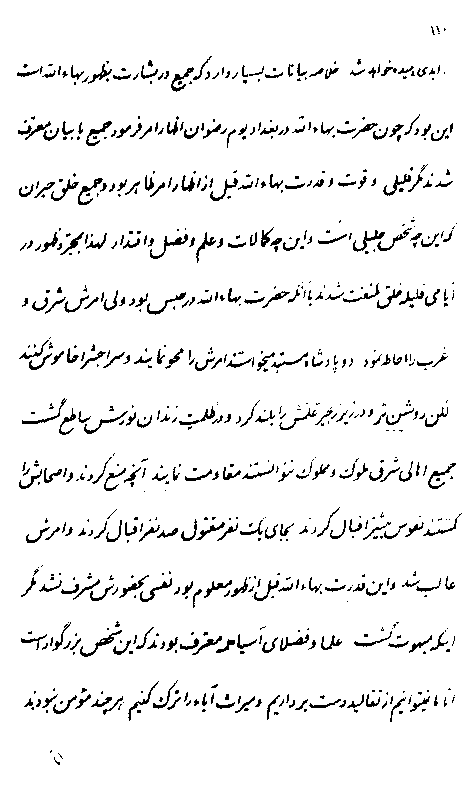 ۱۱۰
ابدی میده خواهد شد خلاصه بیانات بسیار وارد که جمیع در بشارت بظهور بهاءالله است
این بود که چون حضرت بهاءالله در بغداد یوم رضوان اظهار امر فرمود جمیع با بیان معترف
شدند مگر قلیلی و قوت و قدرت بهاءالله قبل از اظهار امر ظاهر بود و جمیع خلق حیران
که این چه شخص جلیلی است و این چه کمالات و علم و فضل و اقتدار لهذا بمجرد ظهور در
ایامی قلیله خلق ملتفت شدند با آنکه حضرت بهاءالله در حبس بود ولی امرش شرق و
غرب را احاطه نمود دو پادشاه مستبد میخواستند امرش را محو نمایند و سراجش را خاموش کنند
لکن روشن‌تر و در زیر زنجیر علمش را بلند کرد و در ظلمت زندان نورش ساطع گشت
جمیع اهالی شرق ملوک و مملوک نتوانستند مقاومت نمایند آنچه منع کردند و اصحابش را
کشتند نفوس بیشتر اقبال کردند بجای یک نفر مقتول صد نفر اقبال کردند و امرش
غالب شد و این قدرت بهاءالله قبل از ظهور معلوم بود نفسی بحضورش مشرف نشد مگر
اینکه مبهوت گشت علما و فضلای آسیا همه معترف بودند که این شخص بزرگوار است
اما ما نمیتوانیم از تقالید دست برداریم و میراث آباء را ترک کنیم هر چند مؤمن نبودند